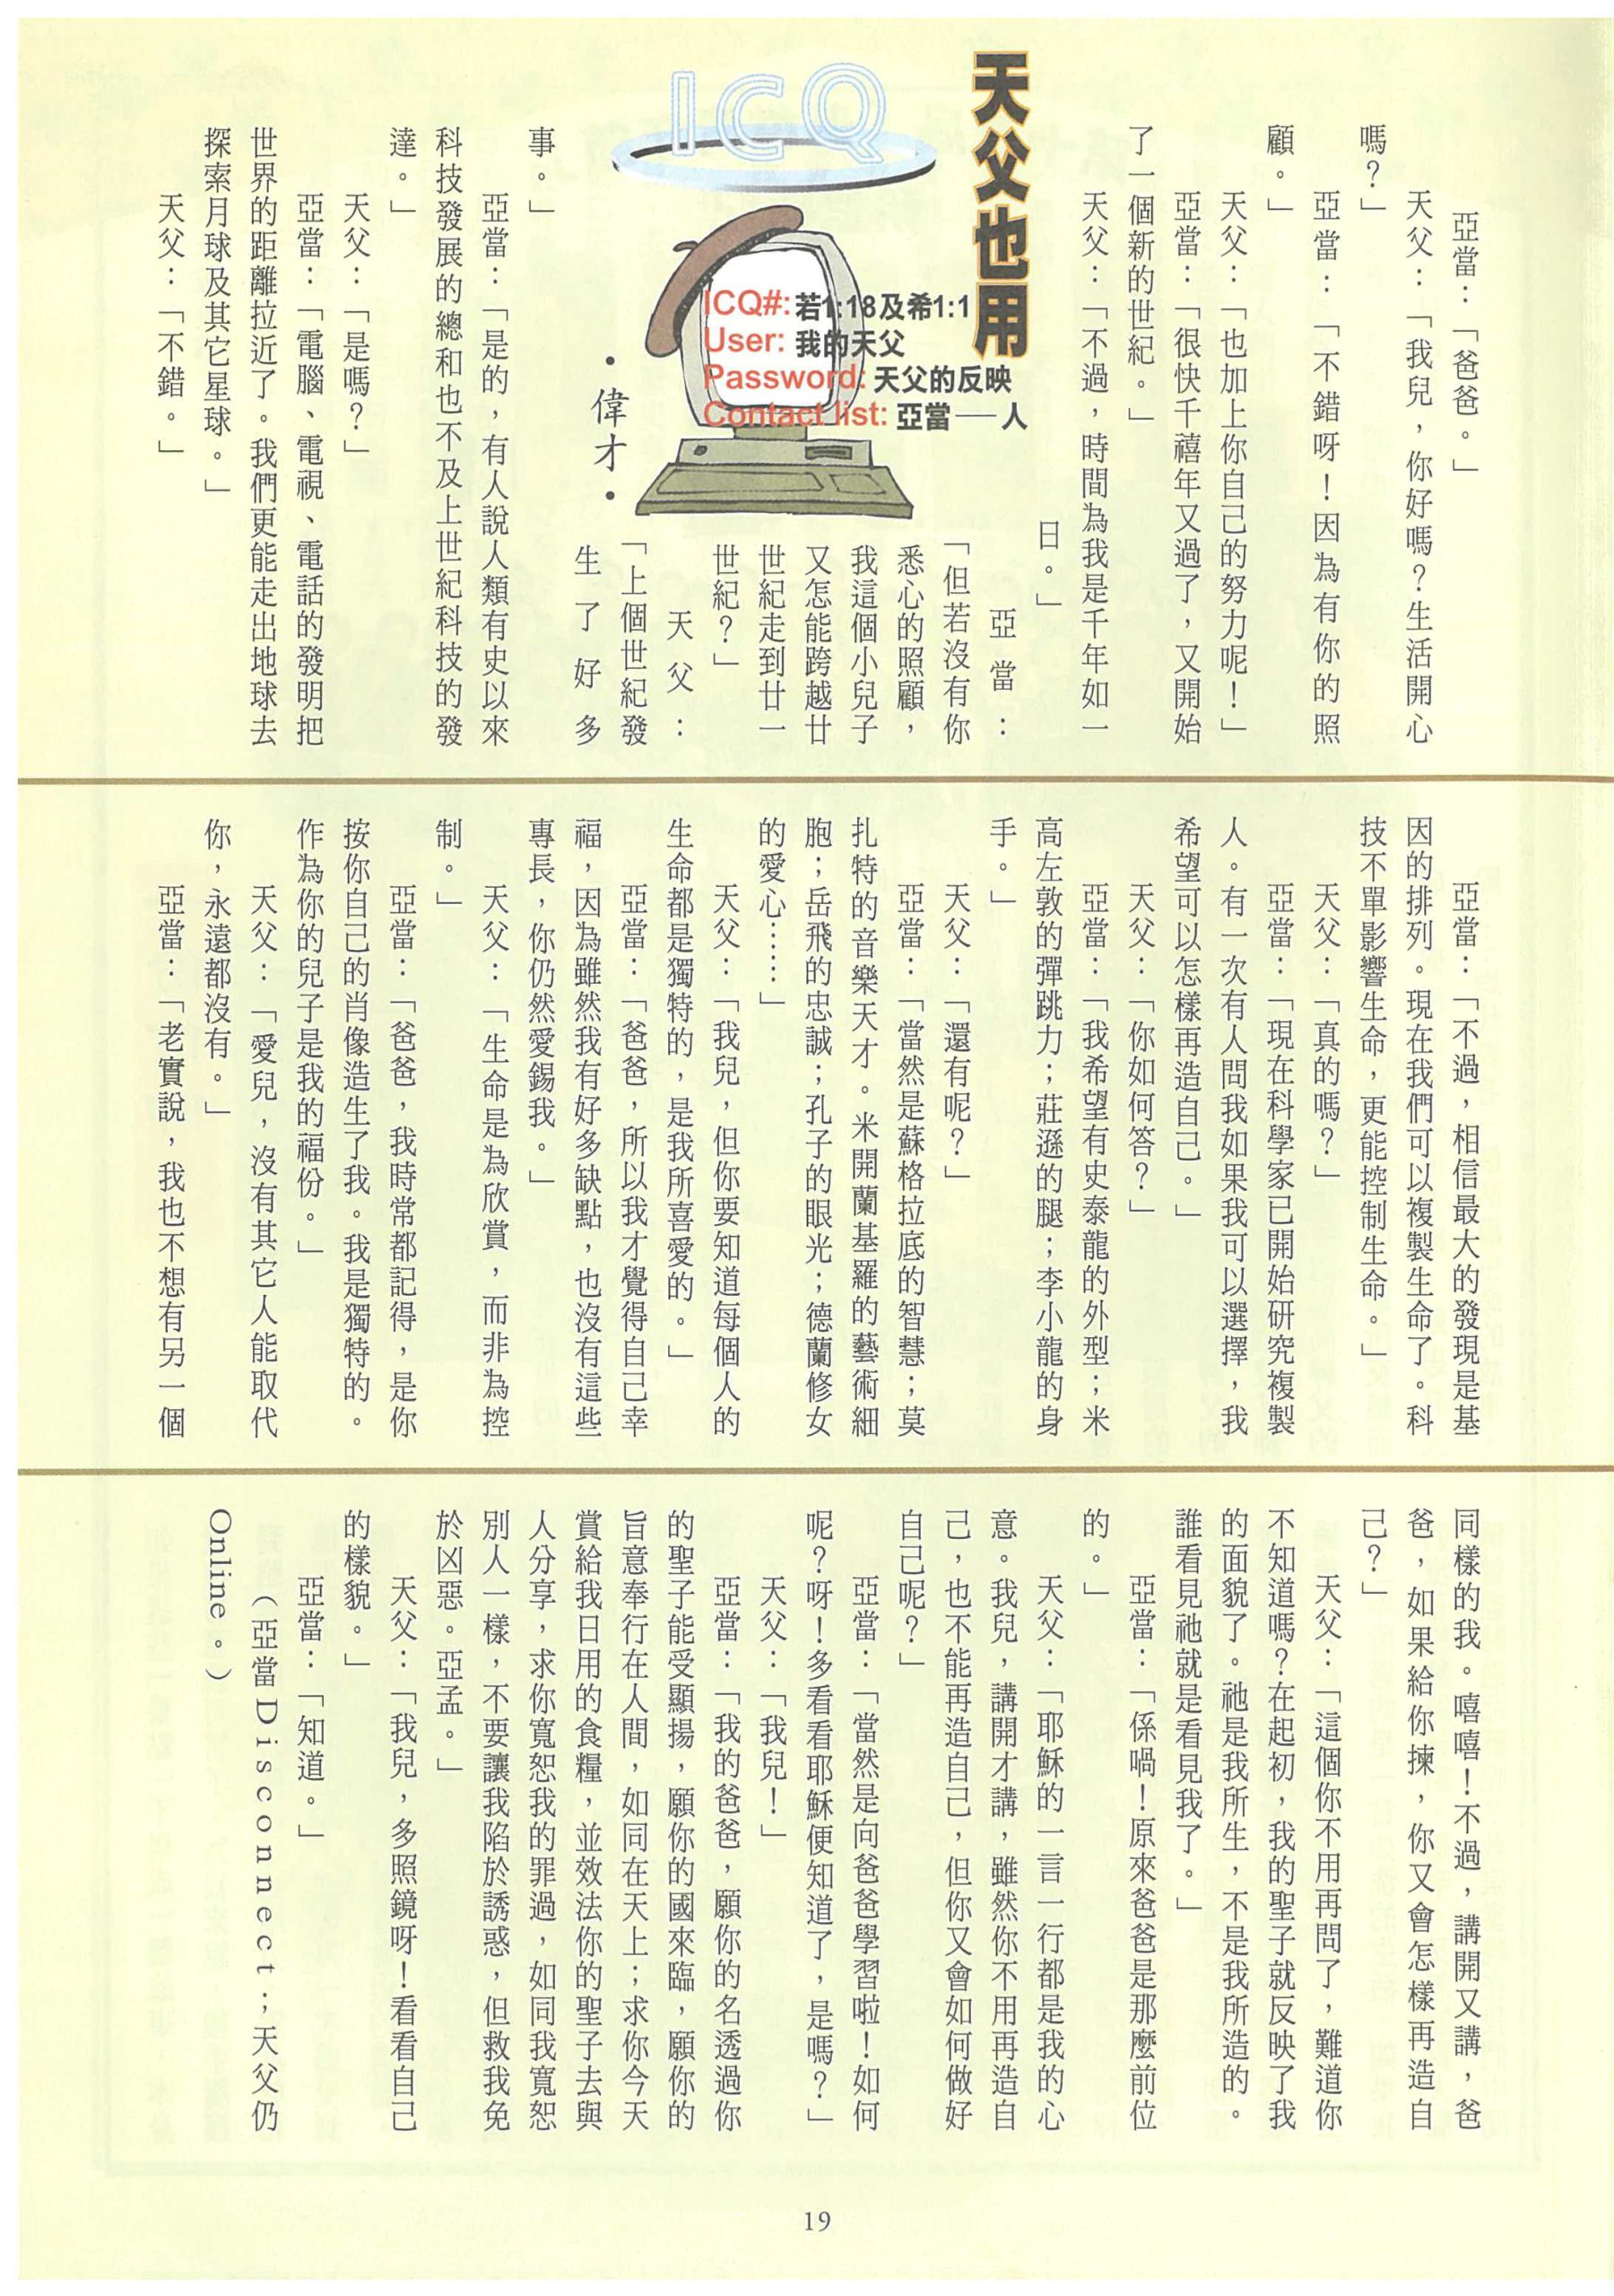 天父也用
ICQ
ICQ#: 若1:18及希1:1
User: 我的天父
Password: 天父的反映
Contact list: 亞當──人
•偉才•
亞當：「爸爸。」
天父：「我兒，你好嗎？生活開心
嗎？」
亞當：「不錯呀！因為有你的照
顧。」
天父：「也加上你自己的努力呢！」
亞當：「很快千禧年又過了，又開始
了一個新的世紀。」
天父：「不過，時間為我是千年如一
日。」
亞當：
「但若沒有你
悉心的照顧，
我這個小兒子
又怎能跨越廿
世紀走到廿一
世紀？」
天父：
「上個世紀發
生了好多
事。」
亞當：「是的，有人說人類有史以來
科技發展的總和也不及上世紀科技的發
達。」
天父：「是嗎？」
亞當：「電腦、電視、電話的發明把
世界的距離拉近了。我們更能走出地球去
探索月球及其它星球。」
天父：「不錯。」
亞當：「不過，相信最大的發現是基
因的排列。現在我們可以複製生命了。科
技不單影響生命，更能控制生命。」
天父：「真的嗎？」
亞當：「現在科學家已開始研究複製
人。有一次有人問我如果我可以選擇，我
希望可以怎樣再造自己。」
天父：「你如何答？」
亞當：「我希望有史泰龍的外型；米
高左敦的彈跳力；莊遜的腿；李小龍的身
手。」
天父：「還有呢？」
亞當：「當然是蘇格拉底的智慧；莫
扎特的音樂天才。米開蘭基羅的藝術細
胞；岳飛的忠誠；孔子的眼光；德蘭修女
的愛心……」
天父：「我兒，但你要知道每個人的
生命都是獨特的，是我所喜愛的。」
亞當：「爸爸，所以我才覺得自己幸
福，因為雖然我有好多缺點，也沒有這些
專長，你仍然愛錫我。」
天父：「生命是為欣賞，而非為控
制。」
亞當：「爸爸，我時常都記得，是你
按你自己的肖像造生了我。我是獨特的。
作為你的兒子是我的福份。」
天父：「愛兒，沒有其它人能取代
你，永遠都沒有。」
亞當：「老實說，我也不想有另一個
同樣的我。嘻嘻！不過，講開又講，爸
爸，如果給你揀，你又會怎樣再造自
己？」
天父：「這個你不用再問了，難道你
不知道嗎？在起初，我的聖子就反映了我
的面貌了。祂是我所生，不是我所造的。
誰看見祂就是看見我了。」
亞當：「係喎！原來爸爸是那麼前位
的。」
天父：「耶穌的一言一行都是我的心
意。我兒，講開才講，雖然你不用再造自
己，也不能再造自己，但你又會如何做好
自己呢？」
亞當：「當然是向爸爸學習啦！如何
呢？呀！多看看耶穌便知道了，是嗎？」
天父：「我兒！」
亞當：「我的爸爸，願你的名透過你
的聖子能受顯揚，願你的國來臨，願你的
旨意奉行在人間，如同在天上；求你今天
賞給我日用的食糧，並效法你的聖子去與
人分享，求你寬恕我的罪過，如同我寬恕
別人一樣，不要讓我陷於誘惑，但救我免
於凶惡。亞孟。」
天父：「我兒，多照鏡呀！看看自己
的樣貌。」
亞當：「知道。」
（亞當Disconnect；天父仍
Online。）
19